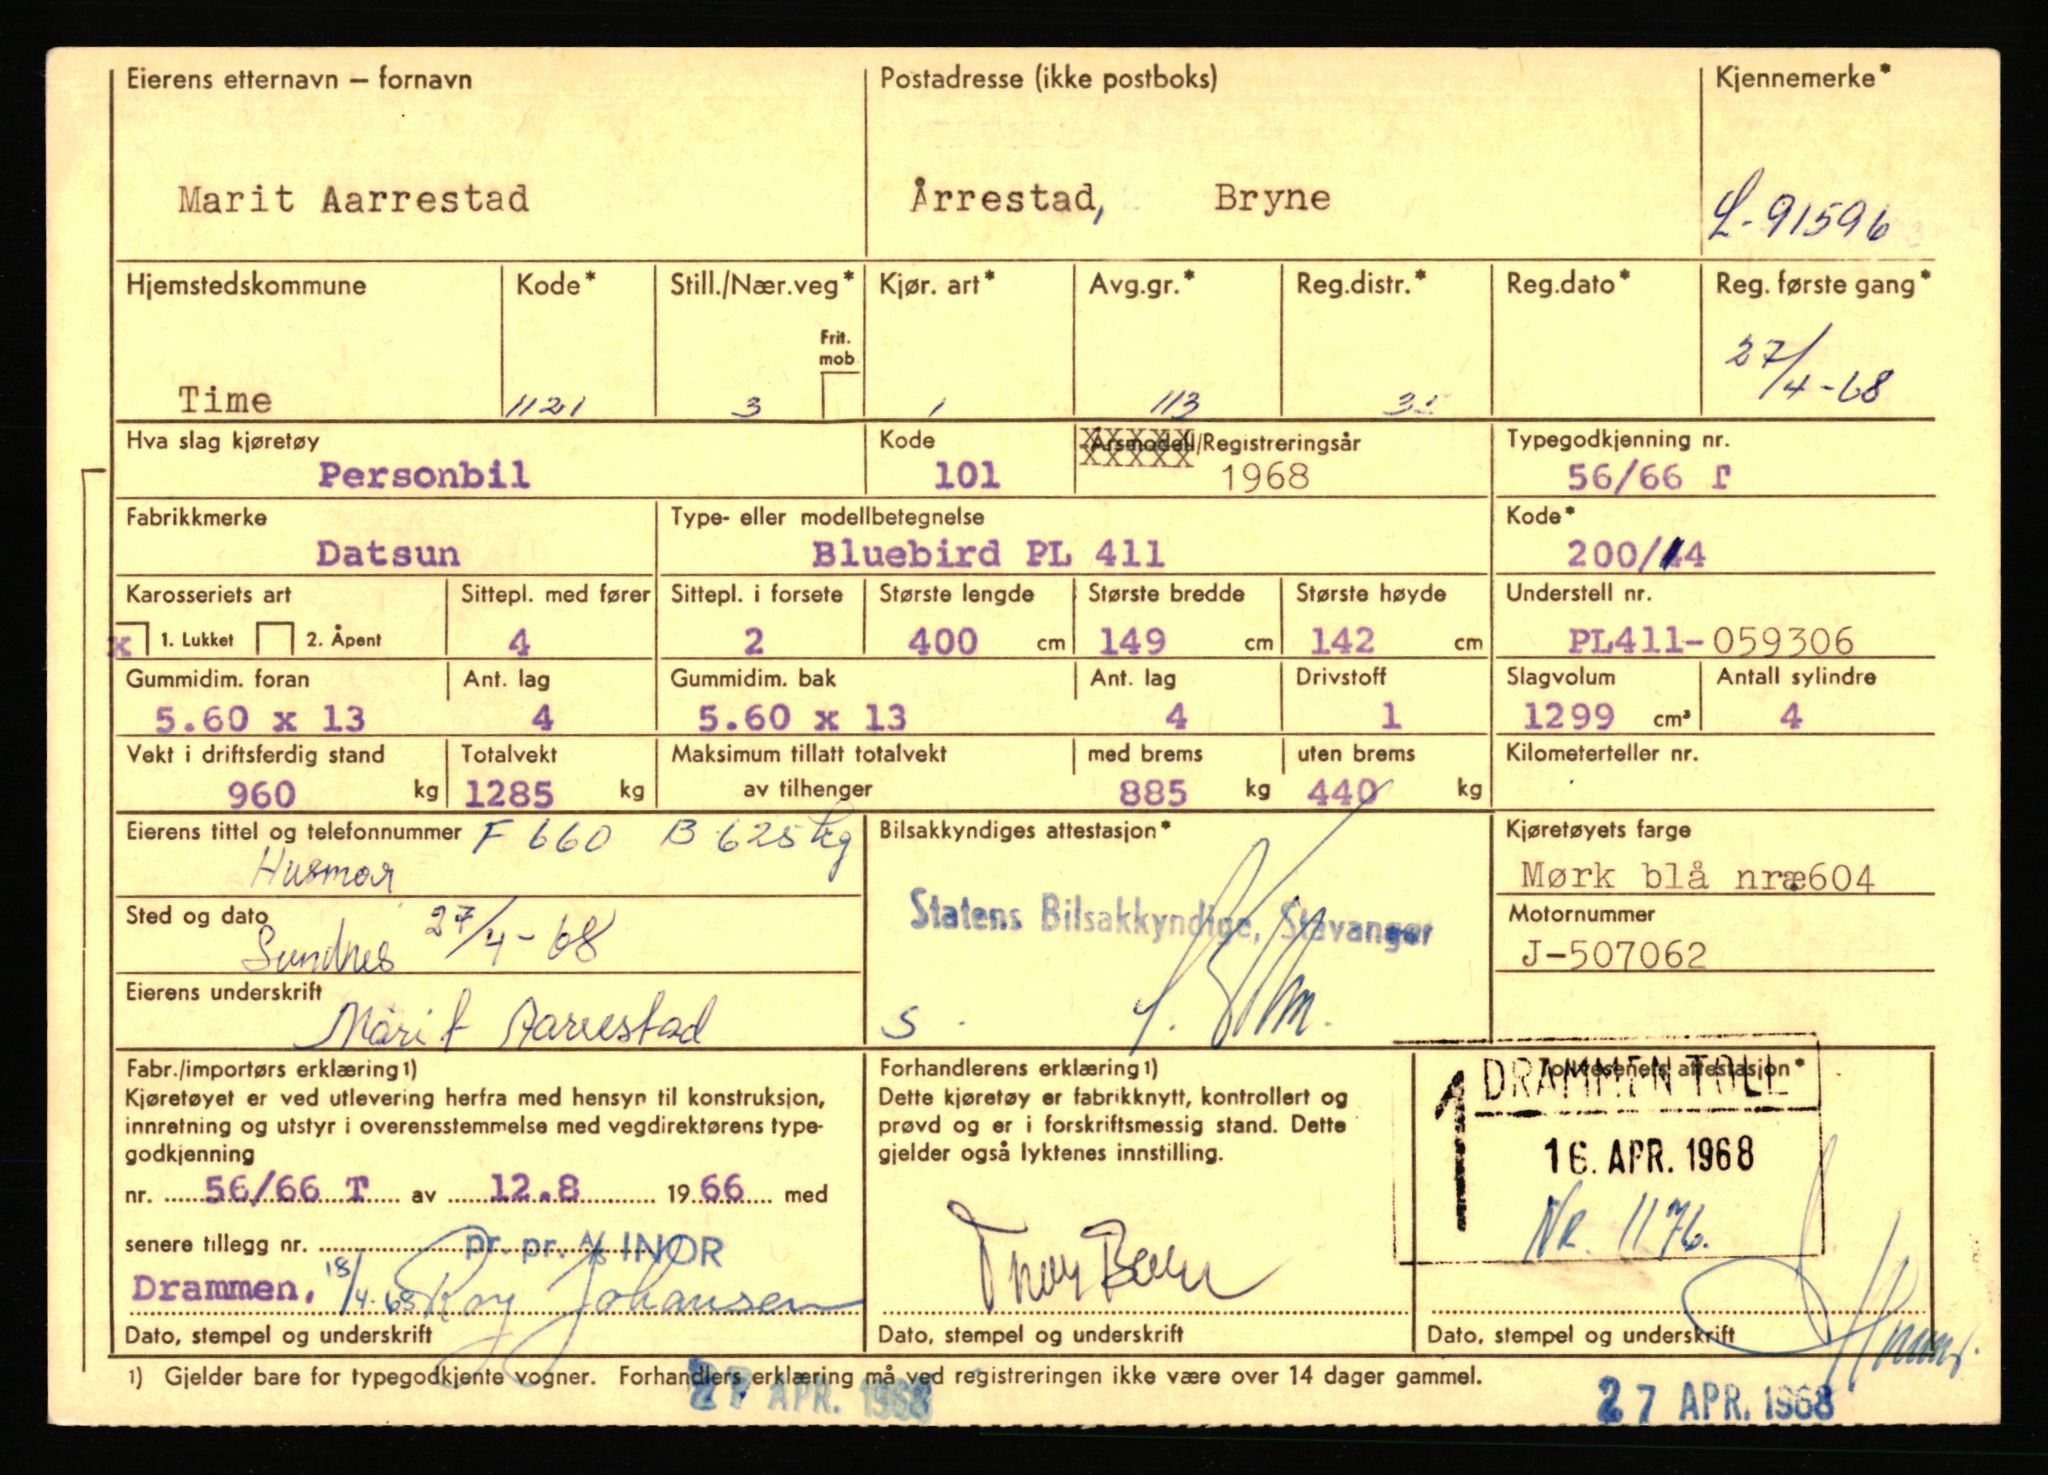 Eierens etternavn — fornavn Postadresse (ikke postboks) Kjennemerke*
Marit Aarrestad Årrestad, Bryne L-91596
Hjemstedskommune Kode* Still./Nær.veg* Kjør. art* Avg.gr.* Reg.distr.* Reg.dato* Reg. første gang*
Frit. mob
27/4-68
Time 1121 3 1 113 35
Hva slag kjøretøy Kode Årsmodell/Registreringsår Typegodkjenning nr.
Personbil 101 1968 56/66 T
Fabrikkmerke Type- eller modellbetegnelse Kode*
Datsun Bluebird PL 411 200/14
Karosseriets art Sittepl. med fører Sittepl. i forsete Største lengde Største bredde Største høyde Understell nr.
x 1. Lukket 2. Åpent 4 2 400 cm 149 cm 142 cm PL411-059306
Gummidim. foran Ant. lag Gummidim. bak Ant. lag Drivstoff Slagvolum Antall sylindre
5.60 x 13 4 5.60 x 13 4 1 1299 cm³ 4
Vekt i driftsferdig stand Totalvekt Maksimum tillatt totalvekt med brems uten brems Kilometerteller nr.
960 kg 1285 kg av tilhenger 885 kg 440 kg
Eierens tittel og telefonnummer F 660 B 625 kg Bilsakkyndiges attestasjon* Kjøretøyets farge
Husmor Mørk blå nræ604
Sted og dato Statens Bilsakkyndige, Stavanger Motornummer
Sandnes 27/4-68 J-507062
Eierens underskrift
Marit Aarrestad S.
Fabr./importørs erklæring1) Forhandlerens erklæring1) Tollvesenets attestasjon*
DRAMMEN TOLL
1
Kjøretøyet er ved utlevering herfra med hensyn til konstruksjon, Dette kjøretøy er fabrikknytt, kontrollert og
innretning og utstyr i overensstemmelse med vegdirektørens type- prøvd og er i forskriftsmessig stand. Dette
godkjenning gjelder også lyktenes innstilling. 16. APR. 1968
nr. 56/66 T av 12.8 1966 med
Nr. 1176.
senere tillegg nr. pr. pr. A/s INOR
Drammen, 18/4-68 Roy Johansen
Dato, stempel og underskrift Dato, stempel og underskrift Dato, stempel og underskrift
1) Gjelder bare for typegodkjente vogner. Forhandlers erklæring må ved registreringen ikke være over 14 dager gammel.
27 APR. 1968 27 APR. 1968